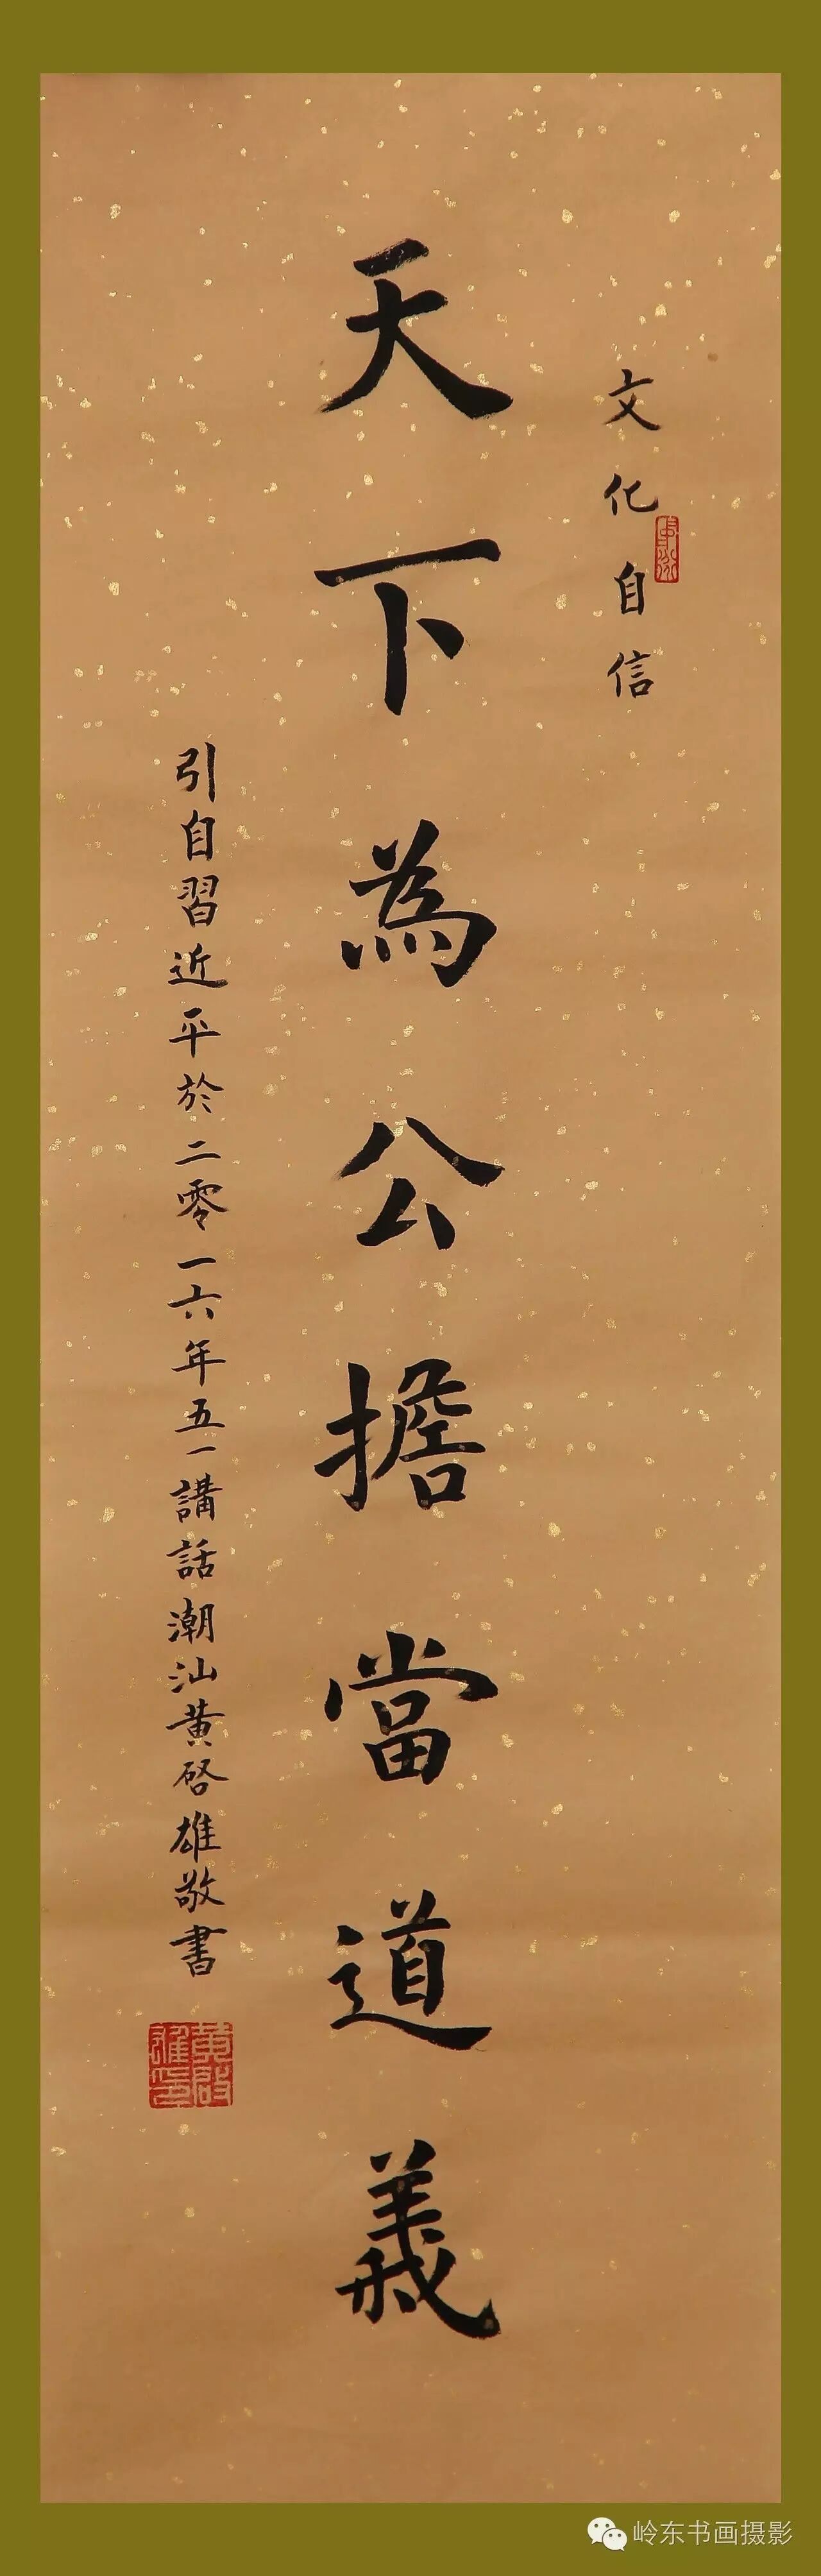 文化自信
天下為公擔當道義
引自習近平於二零一六年五一講話潮汕黄啓雄敬書
黄啟雄印
岭东书画摄影